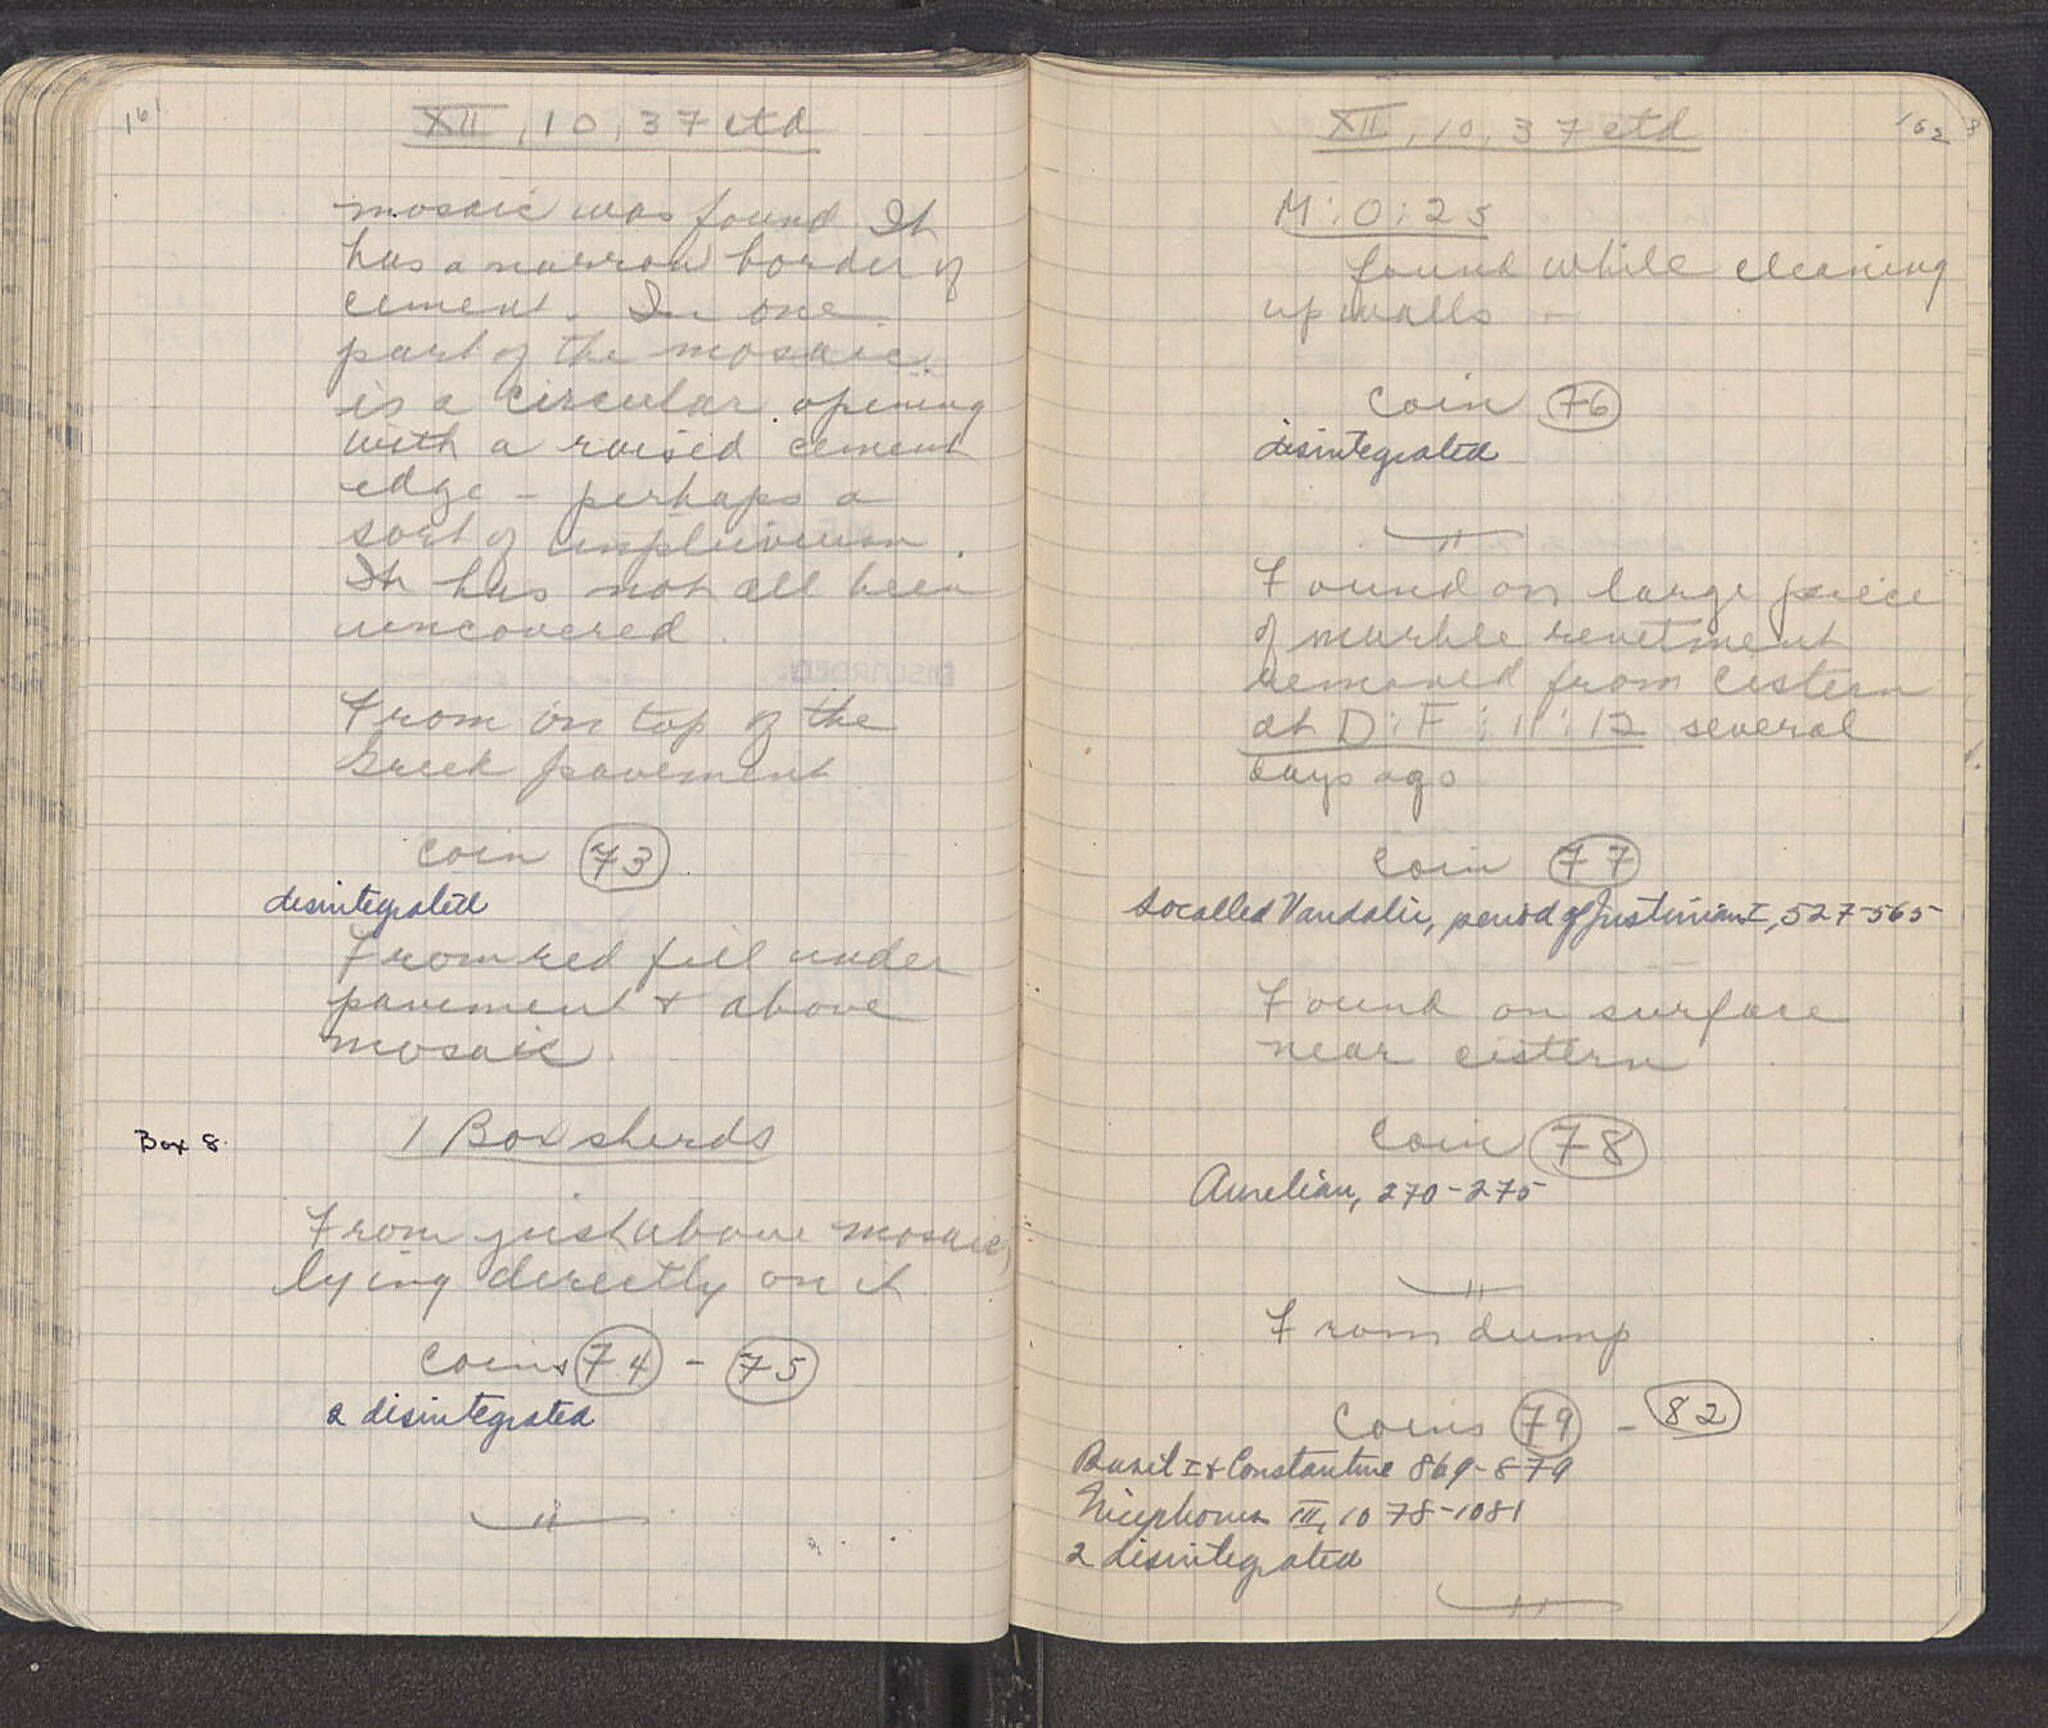 161
XII, 10, 37 ctd
mosaic was found It
has a narrow border of
cement. In one
part of the mosaic
is a circular opening
with a raised cement
edge - perhaps a
sort of impluvium.
It has not all been
uncovered.
From on top of the
Greek pavement
Coin 73
disintegrated
From red fill under
pavement + above
mosaic.
Box 8.
1 Box sherds
From just above mosaic,
lying directly on it
Coins 74 - 75
2 disintegrated
162
XII, 10, 37 ctd
M:O:25
found while cleaning
up walls -
Coin 76
disintegrated
Found on large piece
of marble revetment
removed from cistern
at D:F:11:12 several
days ago
Coin 77
Socalled Vandalic, period of Justinian I, 527-565
Found on surface
near cistern
Coin 78
Aurelian, 270-275
From dump
Coins 79 - 82
Basil I + Constantine 869-879
Nicephorus III, 1078-1081
2 disintegrated